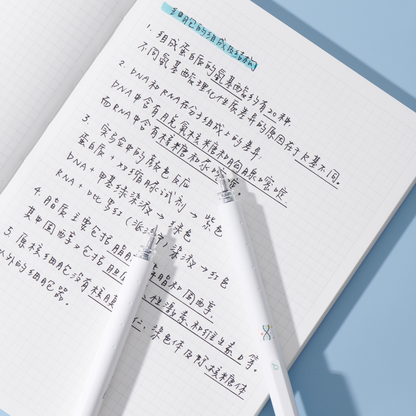 细胞的组成及结构
1. 组成蛋白质的氨基酸约有20种
不同氨基酸理化性质差异的原因在于R基不同。
2. DNA和RNA在分子组成上的差异
DNA中含有脱氧核糖和胸腺嘧啶
而RNA中含有核糖和尿嘧啶。
3. 实验中的颜色反应
蛋白质 + 双缩脲试剂 → 紫色
DNA + 甲基绿染液 → 绿色
RNA + 吡罗红(派洛宁)染液 → 红色
4. 脂质主要包括脂肪 酸脂和固醇,
其中固醇又包括胆固 性激素、和维生素D等。
5. 原核细胞没有核膜 仁, 染色体及除核糖体
以外的细胞器。